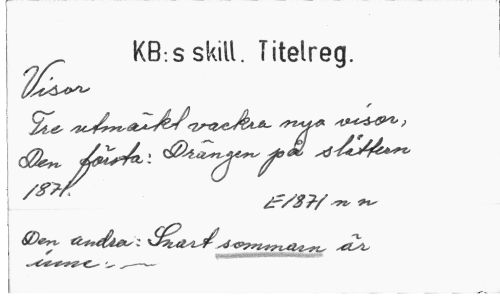 KB:s skill. Titelreg.
Visor
Tre utmärkt vackra nya visor,
Den första: Drängen på slåttern
1871.
E 1871 n n
Den andra: Snart sommarn är
inne: —